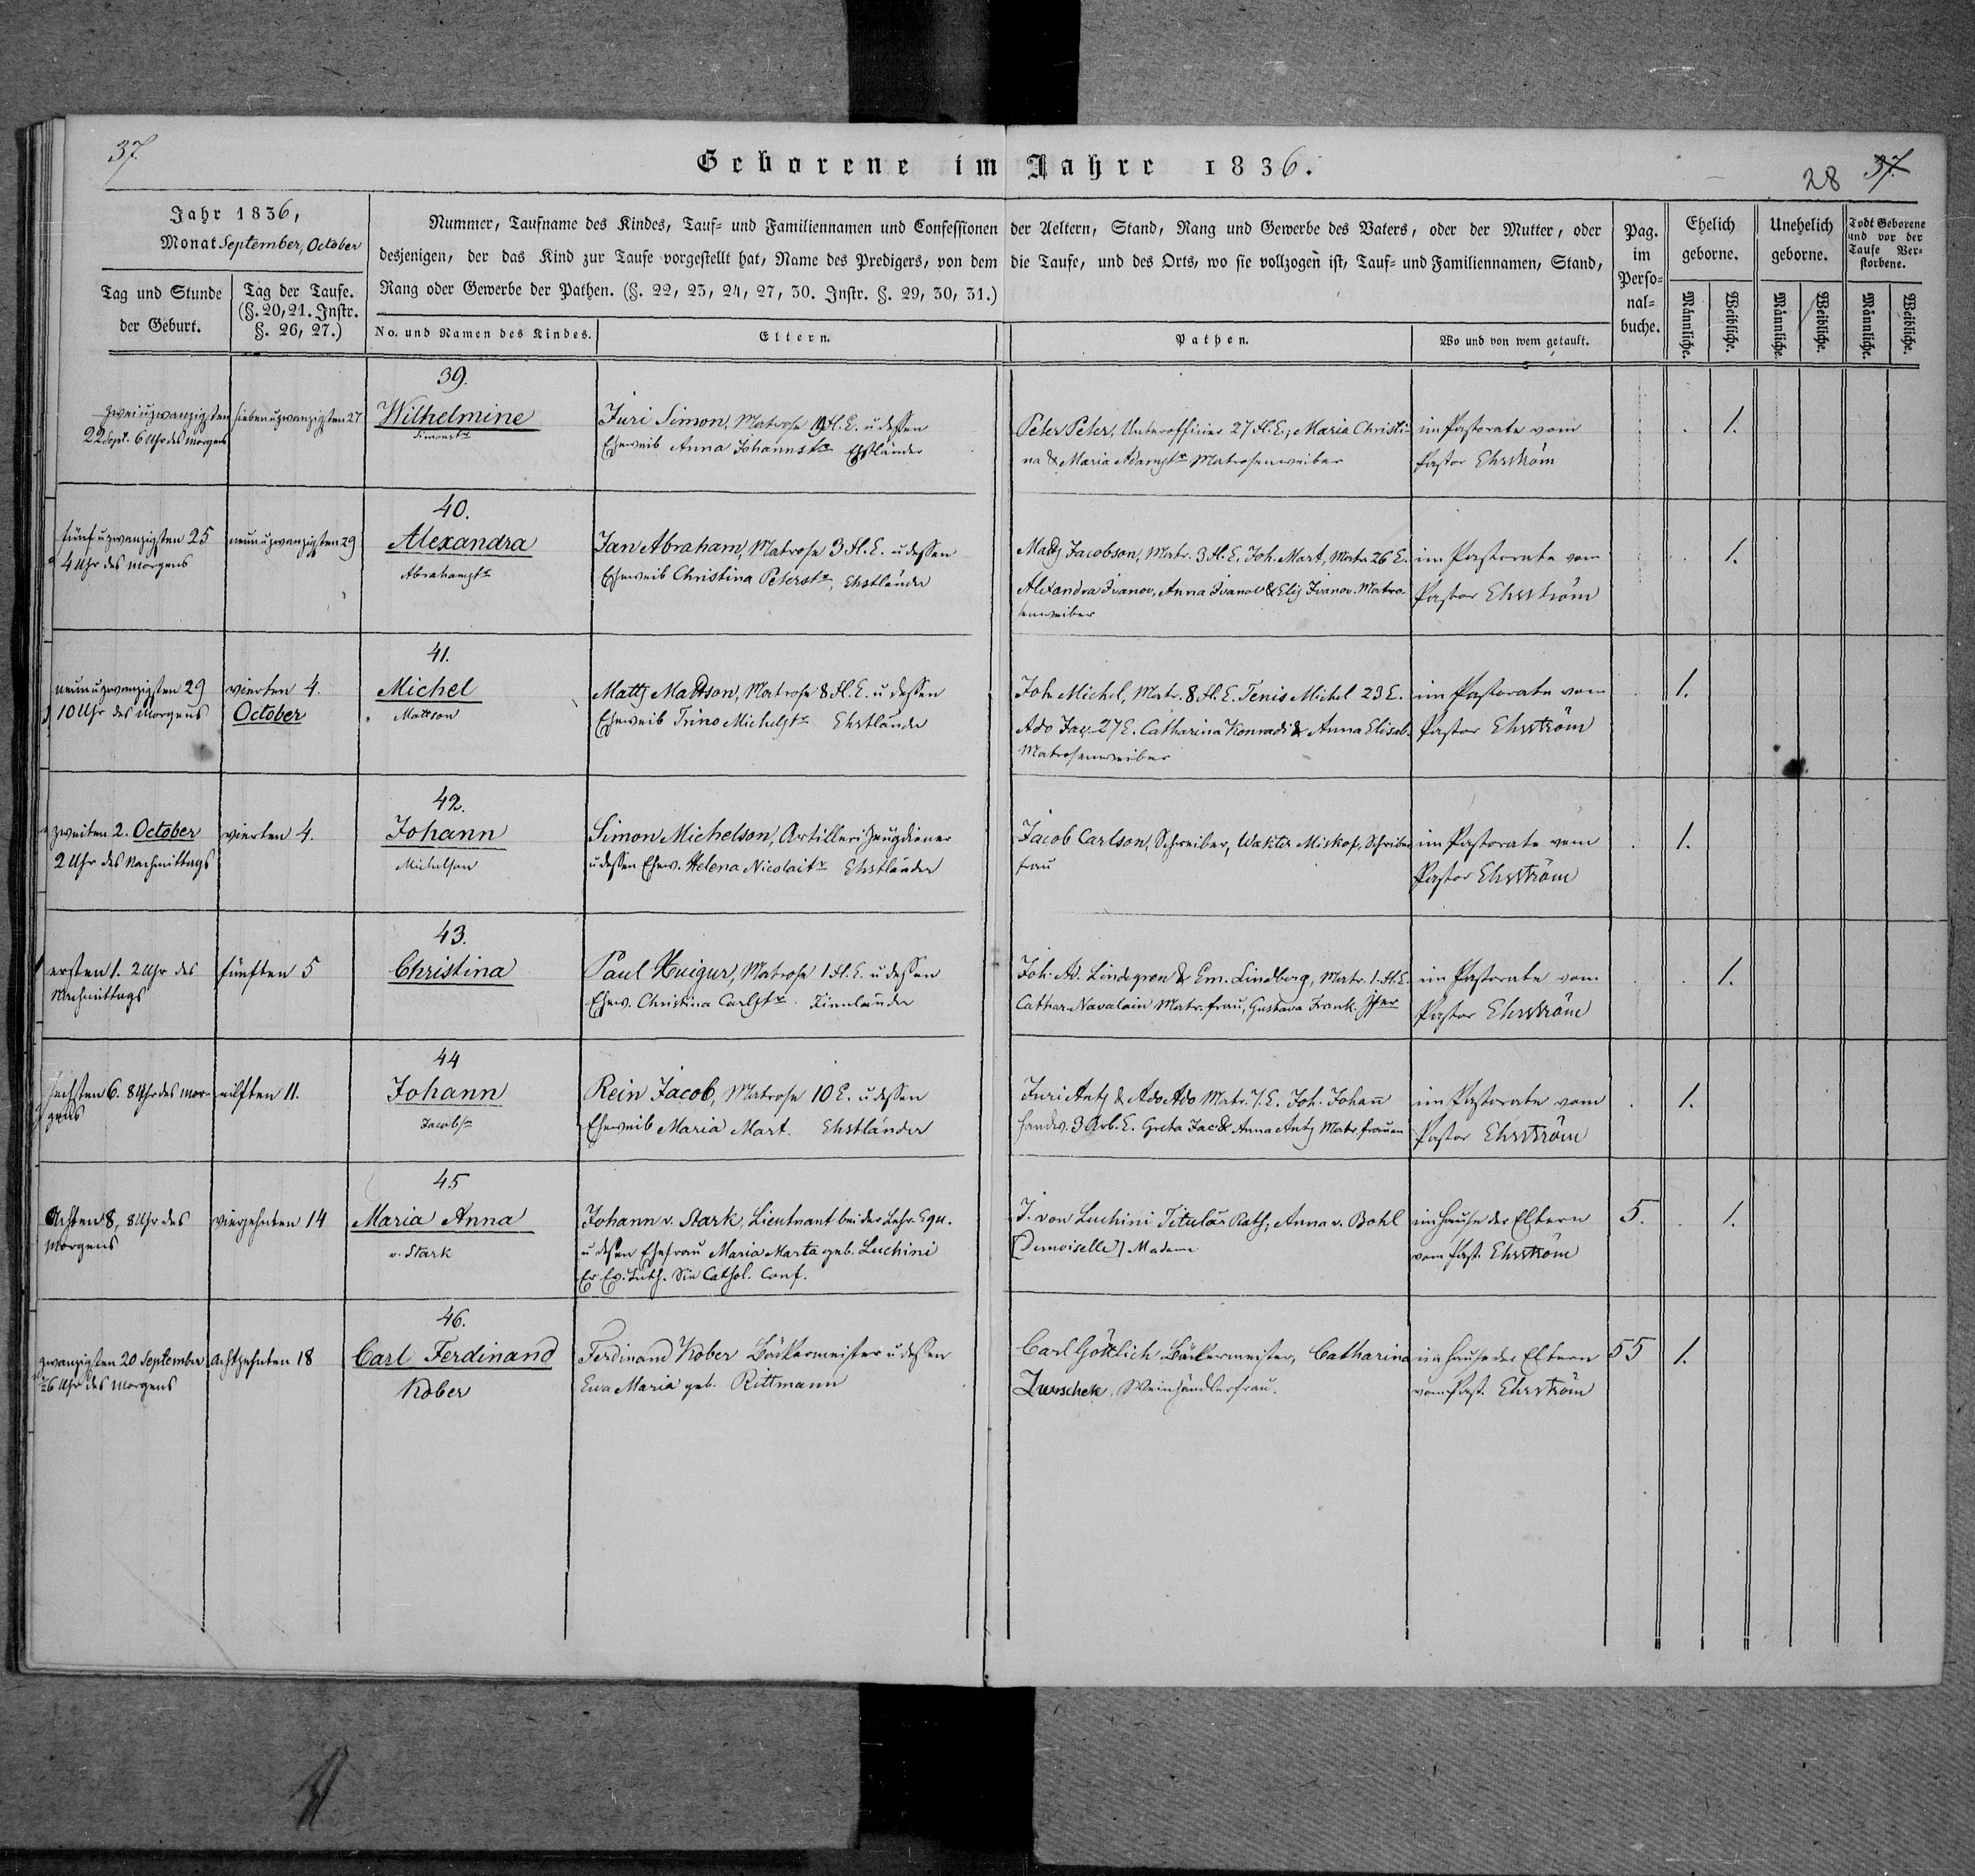 37.
Geborene im Jahre 1836.
28 37.
Jahr 1836,
Monat September, October
Nummer, Taufname des Kindes, Tauf- und Familiennamen und Confessionen der Aeltern, Stand, Rang und Gewerbe des Vaters, oder der Mutter, oder
desjenigen, der das Kind zur Taufe vorgestellt hat, Name des Predigers, von dem die Taufe, und des Orts, wo sie vollzogen ist, Tauf- und Familiennamen, Stand,
Rang oder Gewerbe der Pathen. (§. 22, 23, 24, 27, 30. Instr. §. 29, 30, 31.)
Tag und Stunde
der Geburt.
Tag der Taufe.
(§. 20, 21. Instr.
§. 26, 27.)
No. und Namen des Kindes.
Eltern.
Pathen.
Wo und von wem getauft.
Pag.
im
Perso-
nal-
buche.
Ehelich
geborne.
Unehelich
geborne.
Todt Geborene
und vor der
Taufe Ver-
storbene.
Männliche.
Weibliche.
Männliche.
Weibliche.
Männliche.
Weibliche.
39.
zweiuzwanzigsten
22 Sept. 6 Uhr des Morgens
siebenuzwanzigsten 27
Wilhelmine
Simonstr
Juri Simon, Matrose Fl. E. u dessen
Eheweib Anna Johannstr Ehstländer
Peter Peter, Unterofficier 27 Fl. E.; Maria Christi-
na & Maria Adamstr Matrosenweiber
im Pastorate vom
Pastor Ehrström
1.
40.
fünfuzwanzigsten 25
4 Uhr des Morgens
neunuzwanzigsten 29
Alexandra
Abrahamstr
Jan Abraham, Matrose 3 Fl. E. u dessen
Eheweib Christina Peterstr, Ehstländer
Matz Jacobson, Matr. 3 Fl. E. Joh. Mart, Matr. 26 E.
Alexandra Ivanov, Anna Ivanov & Elis Ivanov. Matro-
senweiber
im Pastorate vom
Pastor Ehrström
1.
41.
neunuzwanzigsten 29
10 Uhr des Morgens
vierten 4.
October
Michel
Mattson
Matts Mattson, Matrose 8 Fl. E. u dessen
Eheweib Trino Michelstr Ehstländer
Joh. Michel, Matr. 8 Fl. E. Tenis Michel 23 E.
Ado Jac. 27 E. Catharina Konradi & Anna Elisab.
Matrosenweiber
im Pastorate vom
Pastor Ehrström
1.
42.
zweiten 2. October
2 Uhr des Nachmittags
vierten 4.
Johann
Michelson
Simon Michelson, Artillerizeugdiener
u dessen Ehew. Helena Nicolaitr Ehstländer
Jacob Carlson, Schreiber, Miskof, Schreiber
frau
im Pastorate vom
Pastor Ehrström
1.
43.
ersten 1. 2 Uhr des
Nachmittags
fünften 5
Christina
Paul Huigur, Matrose 1 Fl. E. u dessen
Ehew. Christina Carlstr Finnländer
Joh. Ad. Lindegren & Em. Lindberg, Matr. 1. Fl. E.
Cathar. Navalain Matr. frau, Gustava Frank.
im Pastorate vom
Pastor Ehrström
1.
44
sechsten 6. 8 Uhr des Mor-
gens
eilften 11.
Johann
Jacobsn
Rein Jacob, Matrose 10 E. u dessen
Eheweib Maria Mart. Ehstländer
Juri Antz & Ado Ado Matr. 7. E. Joh. Johann
Handw. 3 Arb. E. Greta Jac & Anna Antz Matr. frauen
im Pastorate vom
Pastor Ehrström
1.
45
Achten 8, 8 Uhr des
Morgens
vierzehnten 14
Maria Anna
v. Stark
Johann v. Stark, Lieutnant bei der Lehr. Equ.
u dessen Ehefrau Maria Marta geb. Luchini
Er Ev. Luth. Sie Cathol. Conf.
J. von Luchini Titulär Rath, Anna v. Bohl
[Demoiselle] Madame
im Hause der Eltern
vom Past. Ehrström
5.
1.
46.
zwanzigsten 20 September
6 Uhr des Morgens
achtzehnten 18
Carl Ferdinand
Kober
Ferdinand Kober Bäckermeister u dessen
Ewa Maria geb. Rittmann
Carl Göttlich Bäckermeister, Catharina
Weinhändlerfrau.
im Hause der Eltern
vom Past. Ehrström
55
1.